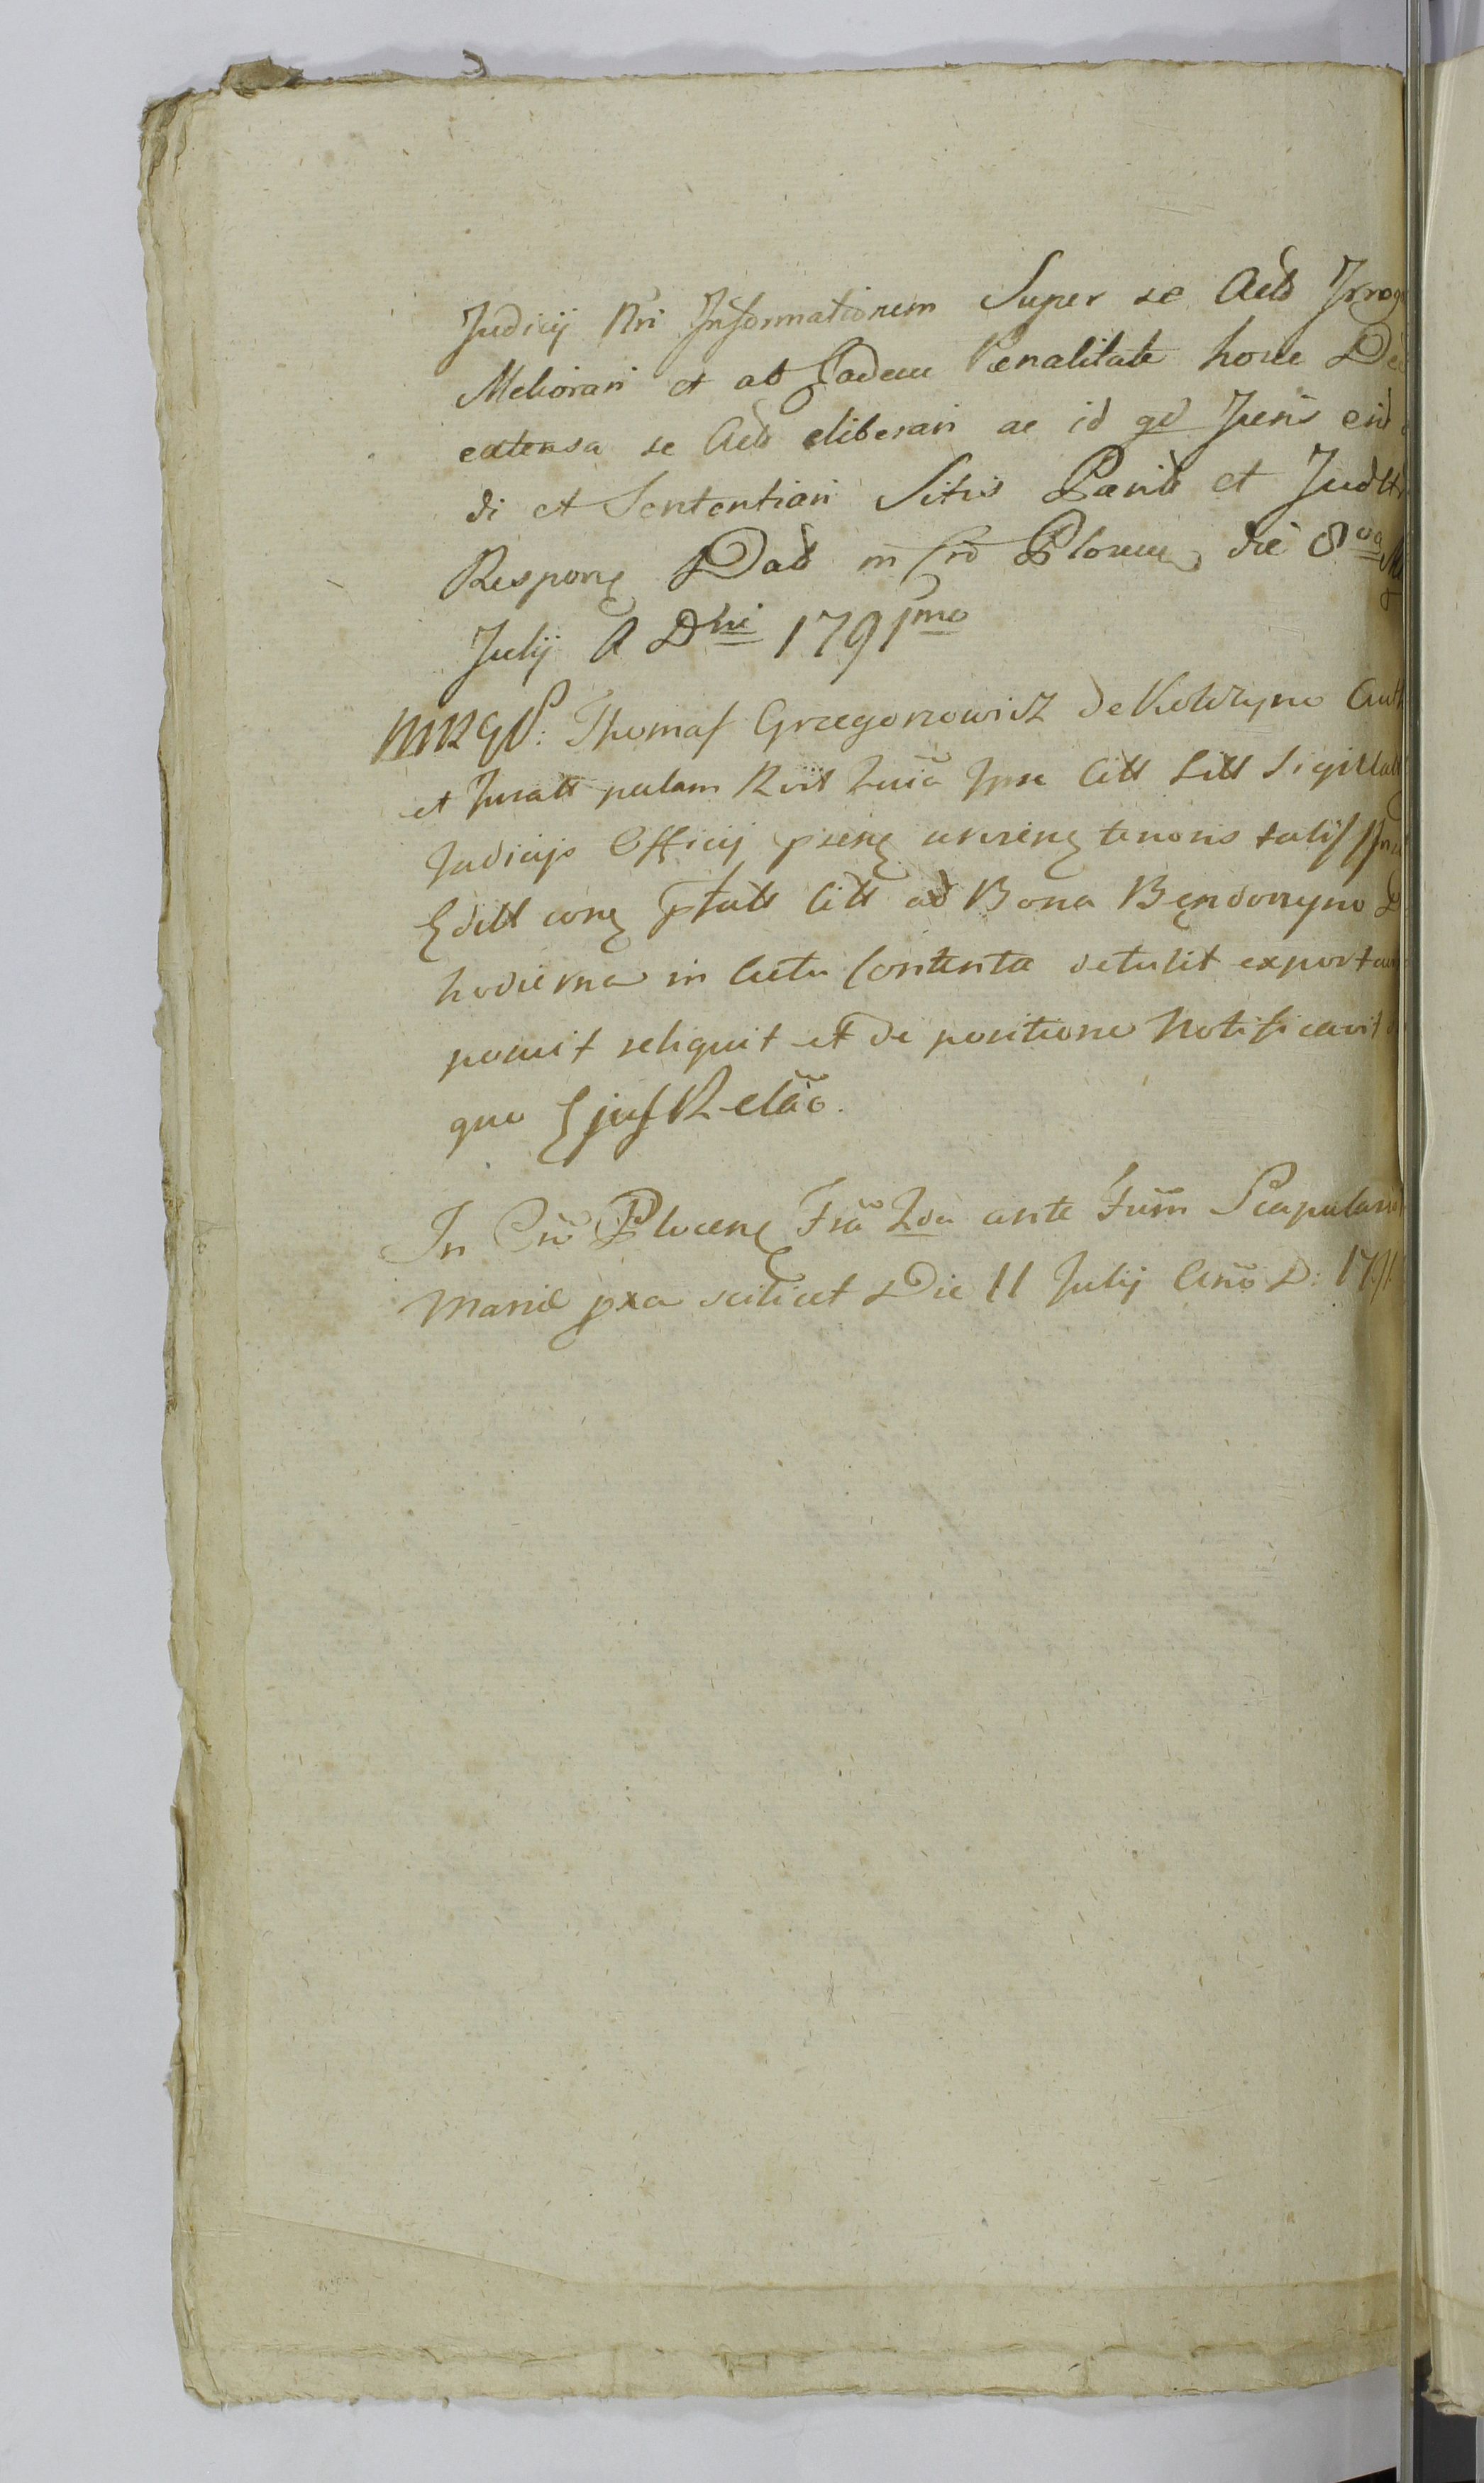 Judicij Nri Informationem Super se Actõ Irrog
Meliorari et ab Eadem Pænalitate hocce De
extensa se Actõ eliberari ac id qd Juris erit
di et Sententiari Sitis Parit et Judltr
Respong Dat in Crõ Plocen die 8va M
Julij A Dni 1791mo
MRGD: Thomas Grzegorzowicz de Kobrzyno Aut
et Juratt palam Rvit Quia Ipse Citt Litt Sigillatt
Judicijs Officij pseng unireng tenoris talis
Edill cong ptatt Citt ad Bona Bendorzyno D
hodierna in Actu Contenta detulit exportav
posuit reliquit et de positione Notificavit
que Ejus Relão.
In Crõ Ploceng Fria 2da ante Fum Scapularis
Mariæ pxa scilicet Die 11 Julij Anõ D: 1791